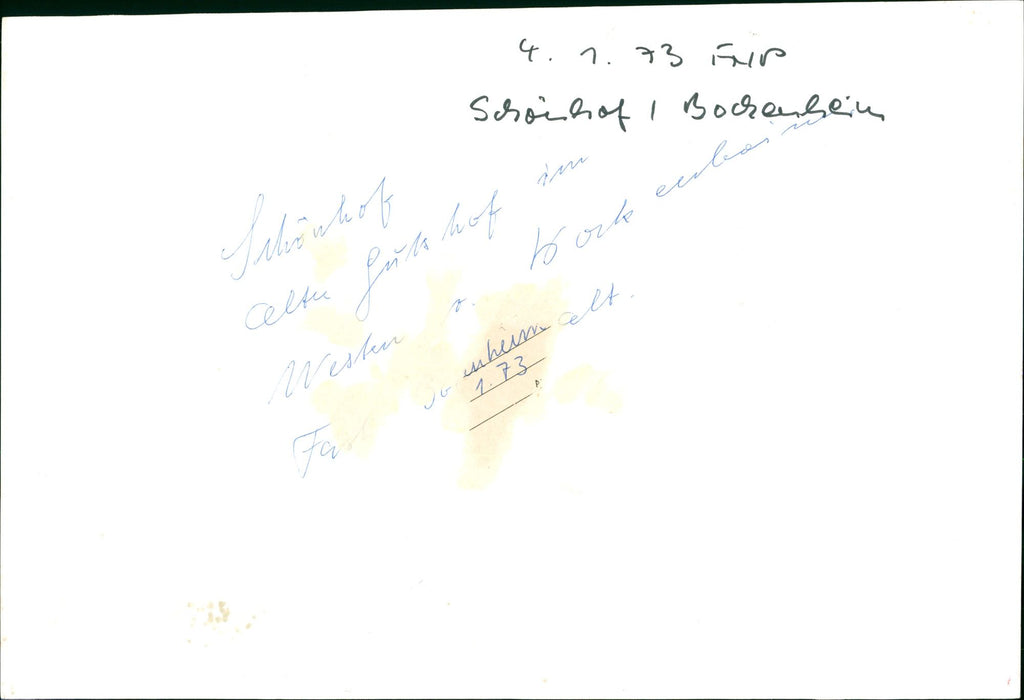 4. 1. 73 FNP
Schönhof / Bockenheim
Schönhof
alter Gutshof im
Westen v. Bockenheim
Fast so alt.
enheim
1.73